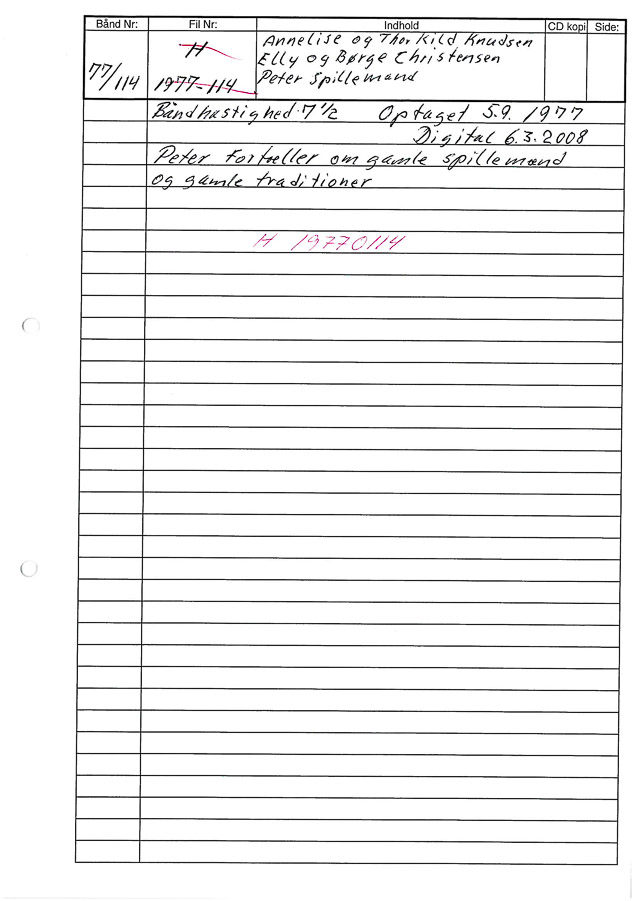 Bånd Nr: Fil Nr: Indhold CD kopi Side:
77/114
H
1977-114
Annelise og Thor Kild Knudsen
Elly og Børge Christensen
Peter Spillemand
Båndhastighed 7 1/2 Optaget 5.9. 1977
Digital 6.3.2008
Peter Fortæller om gamle spillemænd
og gamle traditioner
H 19770114